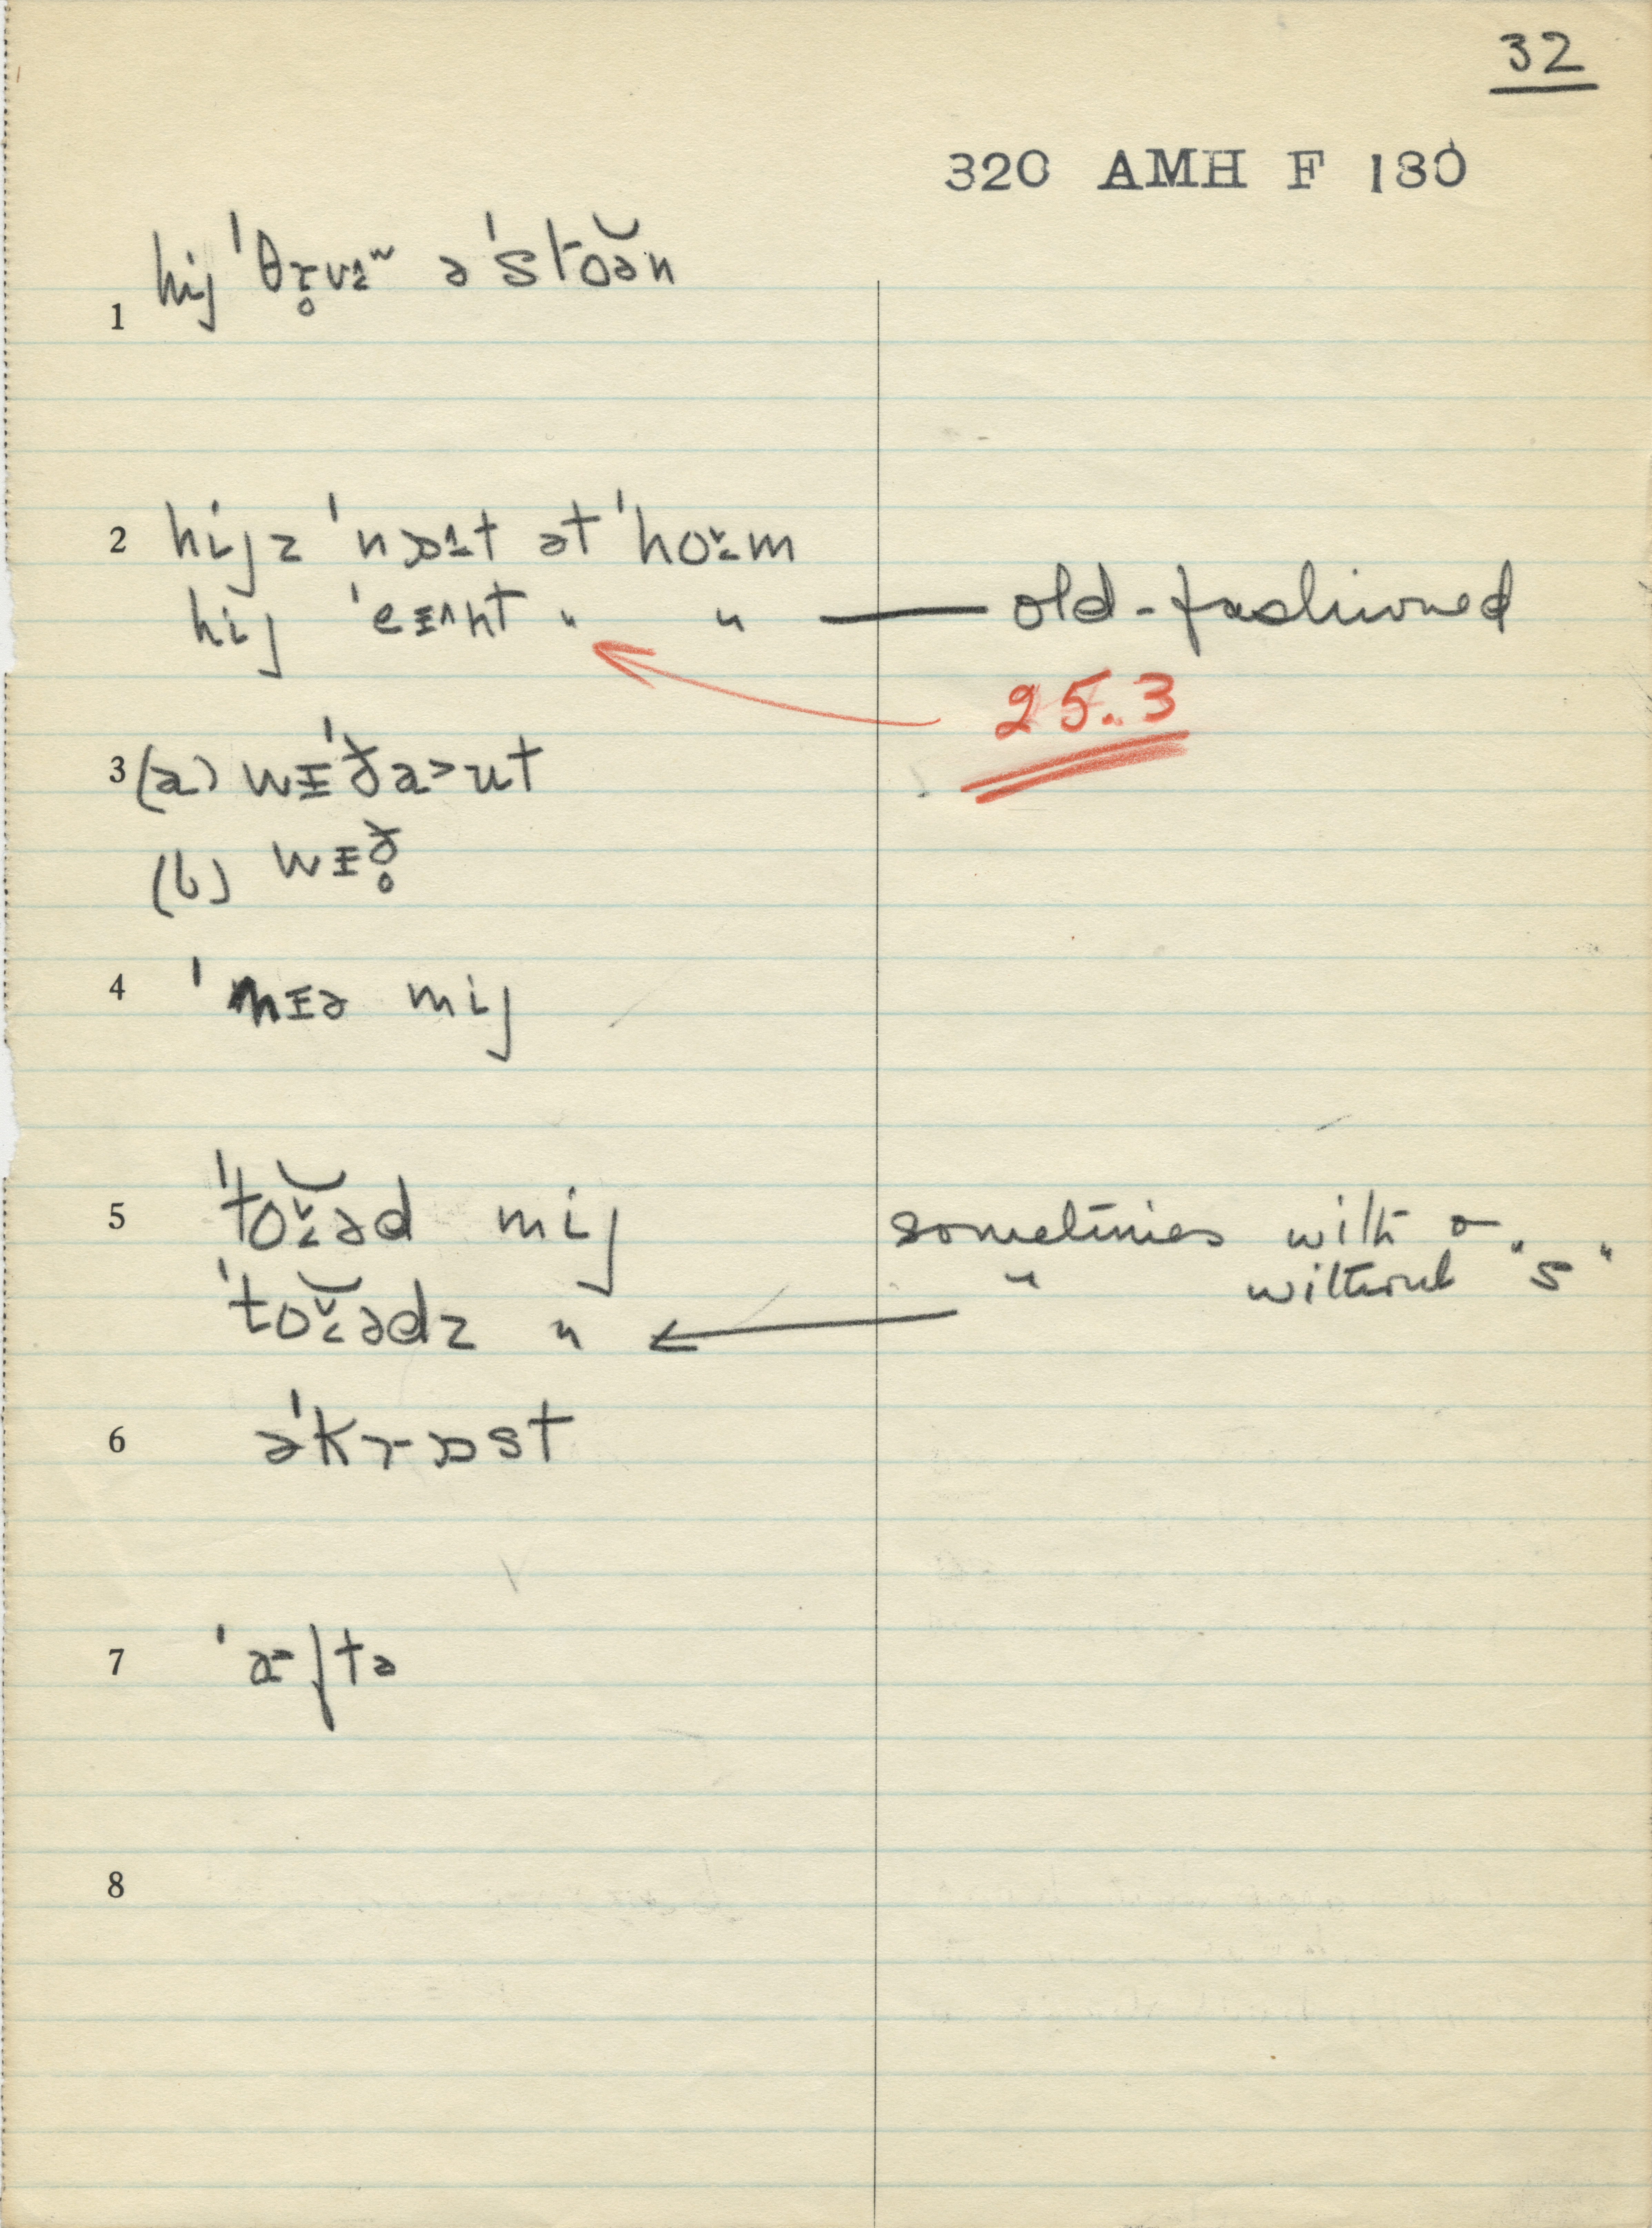 32
320 AMH F 180
1 hij ˈθɹ̥uᵚ əˈstoə̆n
2 hijz ˈnɒt ət ˈhoᴜm
hij ˈeɪnt " " — old-fashioned
25.3
3 (a) wɪˈðaut
(b) wɪð̥
4 ˈnɪə mij
5 ˈtoʊ̆əd mij sometimes with or
ˈtoʊ̆ədz " " without "s"
6 əˈkrɒst
7 ˈæftə
8